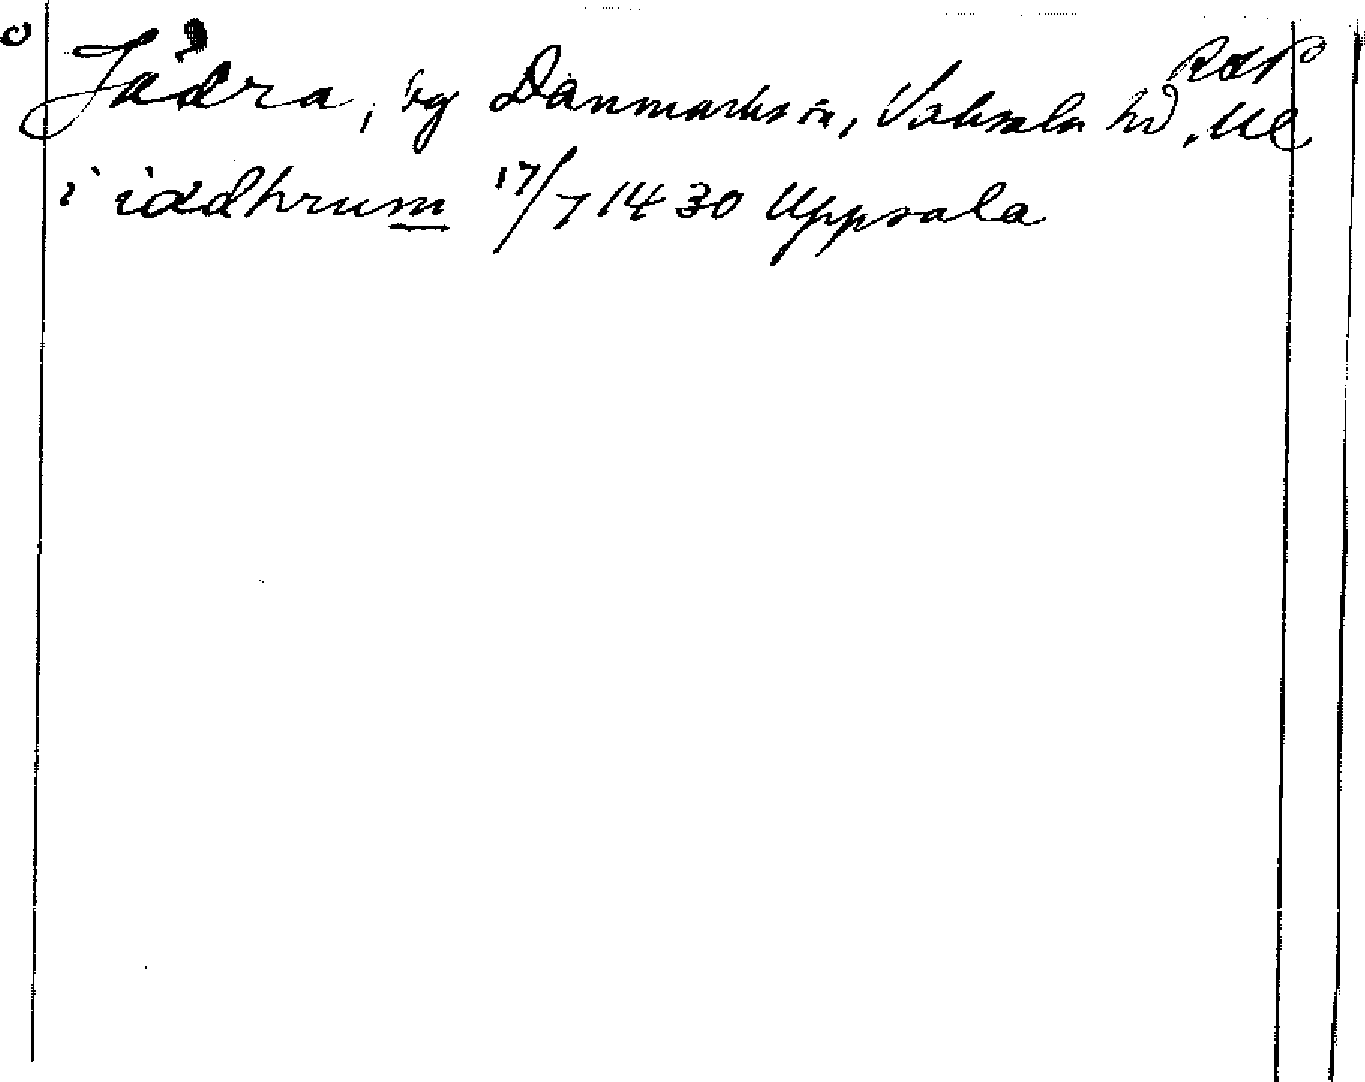 RAP
Jädra, by Danmarks sn, Vaksala hd, Ul
i iædhrum 17/7 1430 Uppsala